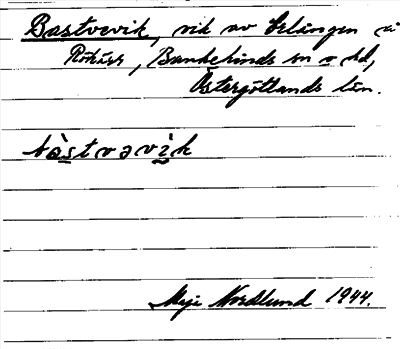 Bastvevik, vik av Erlången i
Rökärr, Bankekinds sn o hd,
Östergötlands län.
bàstvəvìk
Maja Nordlund 1944.